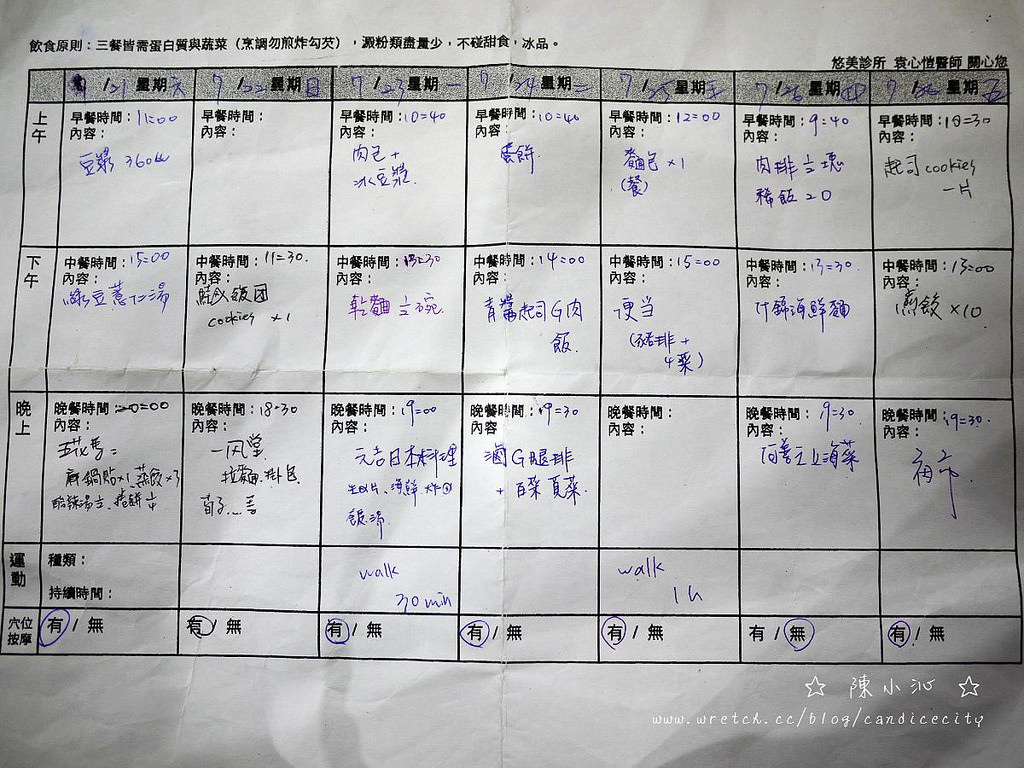 飲食原則：三餐皆需蛋白質與蔬菜（烹調勿煎炸勾芡），澱粉類盡量少，不碰甜食，冰品。
悠美診所 袁心愷醫師 關心您
/21 星期 7/22 星期日 7/23 星期一 7/24 星期二 7/25 星期三 7/26 星期四 7/ 星期五
上午
早餐時間：11=00 早餐時間： 早餐時間：10=40 早餐時間：10=40 早餐時間：12=00 早餐時間：9:40 早餐時間：10=30
內容： 內容： 內容： 內容： 內容： 內容： 內容：
豆漿 360cc 肉包+ 蛋餅. 麵包 x1 肉排 ½塊 起司 cookies
冰豆漿. (餐) 稀飯 一片
下午
中餐時間：15=00 中餐時間：11=30. 中餐時間：13=30 中餐時間：14=00 中餐時間：15=00 中餐時間：13=30. 中餐時間：13=00
內容： 內容： 內容： 內容： 內容： 內容： 內容：
綠豆薏仁湯 飯団 乾麵 ½碗. 青醬起司G肉 便当 什錦海鮮麵 煎餃 x10.
cookies x1 飯. (豬排+
4菜)
晚上
晚餐時間：20=00 晚餐時間：18=30 晚餐時間：19=00 晚餐時間：19=30 晚餐時間： 晚餐時間：19=30 晚餐時間：19=30.
內容： 內容： 內容： 內容 內容： 內容： 內容：
五花馬= 一風堂 元吉日本料理 滷G腿排 上海菜
鍋貼x1、蒸餃x3 拉麵、掛包 生魚片、海鮮、炸 + 白菜 夜市
酸辣湯 飯、湯
運動
種類： walk walk
持續時間： 30 min 1h
穴位按摩
有 / 無 有 / 無 有 / 無 有 / 無 有 / 無 有 / 無 有 / 無
☆ 陳小沁 ☆
www.wretch.cc/blog/candicecity